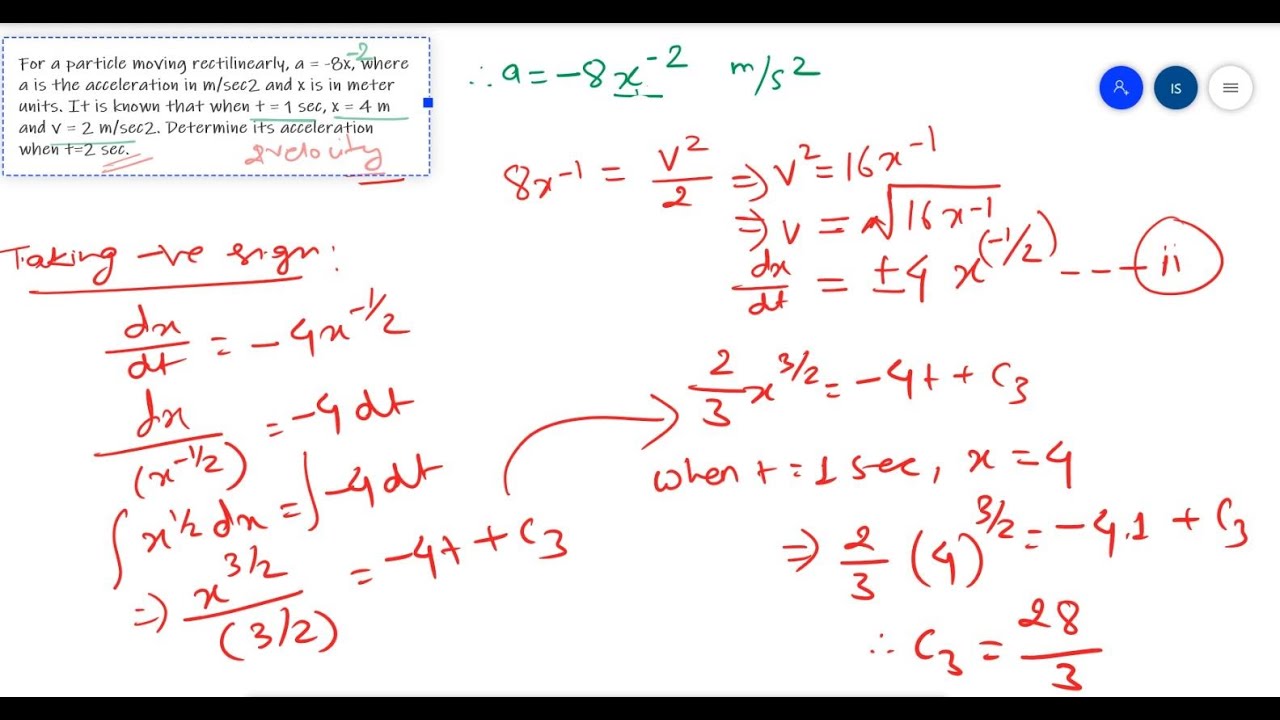 For a particle moving rectilinearly, a = -8x, where
-2
a is the acceleration in m/sec2 and x is in meter
units. It is known that when t = 1 sec, x = 4 m
and v = 2 m/sec2. Determine its acceleration
when t=2 sec.
& velocity
∴ a = -8x^-2 m/s2
IS
8x^-1 = v^2/2 ⇒ v^2 = 16x^-1
⇒ v = √16x^-1
dx/dt = ±4 x^(-1/2) ---- ii
Taking -ve sign:
dx/dt = -4x^-1/2
dx/(x^-1/2) = -4dt
∫x^1/2 dx = ∫-4dt
⇒ x^3/2/(3/2) = -4t + C3
2/3 x^3/2 = -4t + C3
when t = 1 sec, x = 4
⇒ 2/3 (4)^3/2 = -4.1 + C3
∴ C3 = 28/3